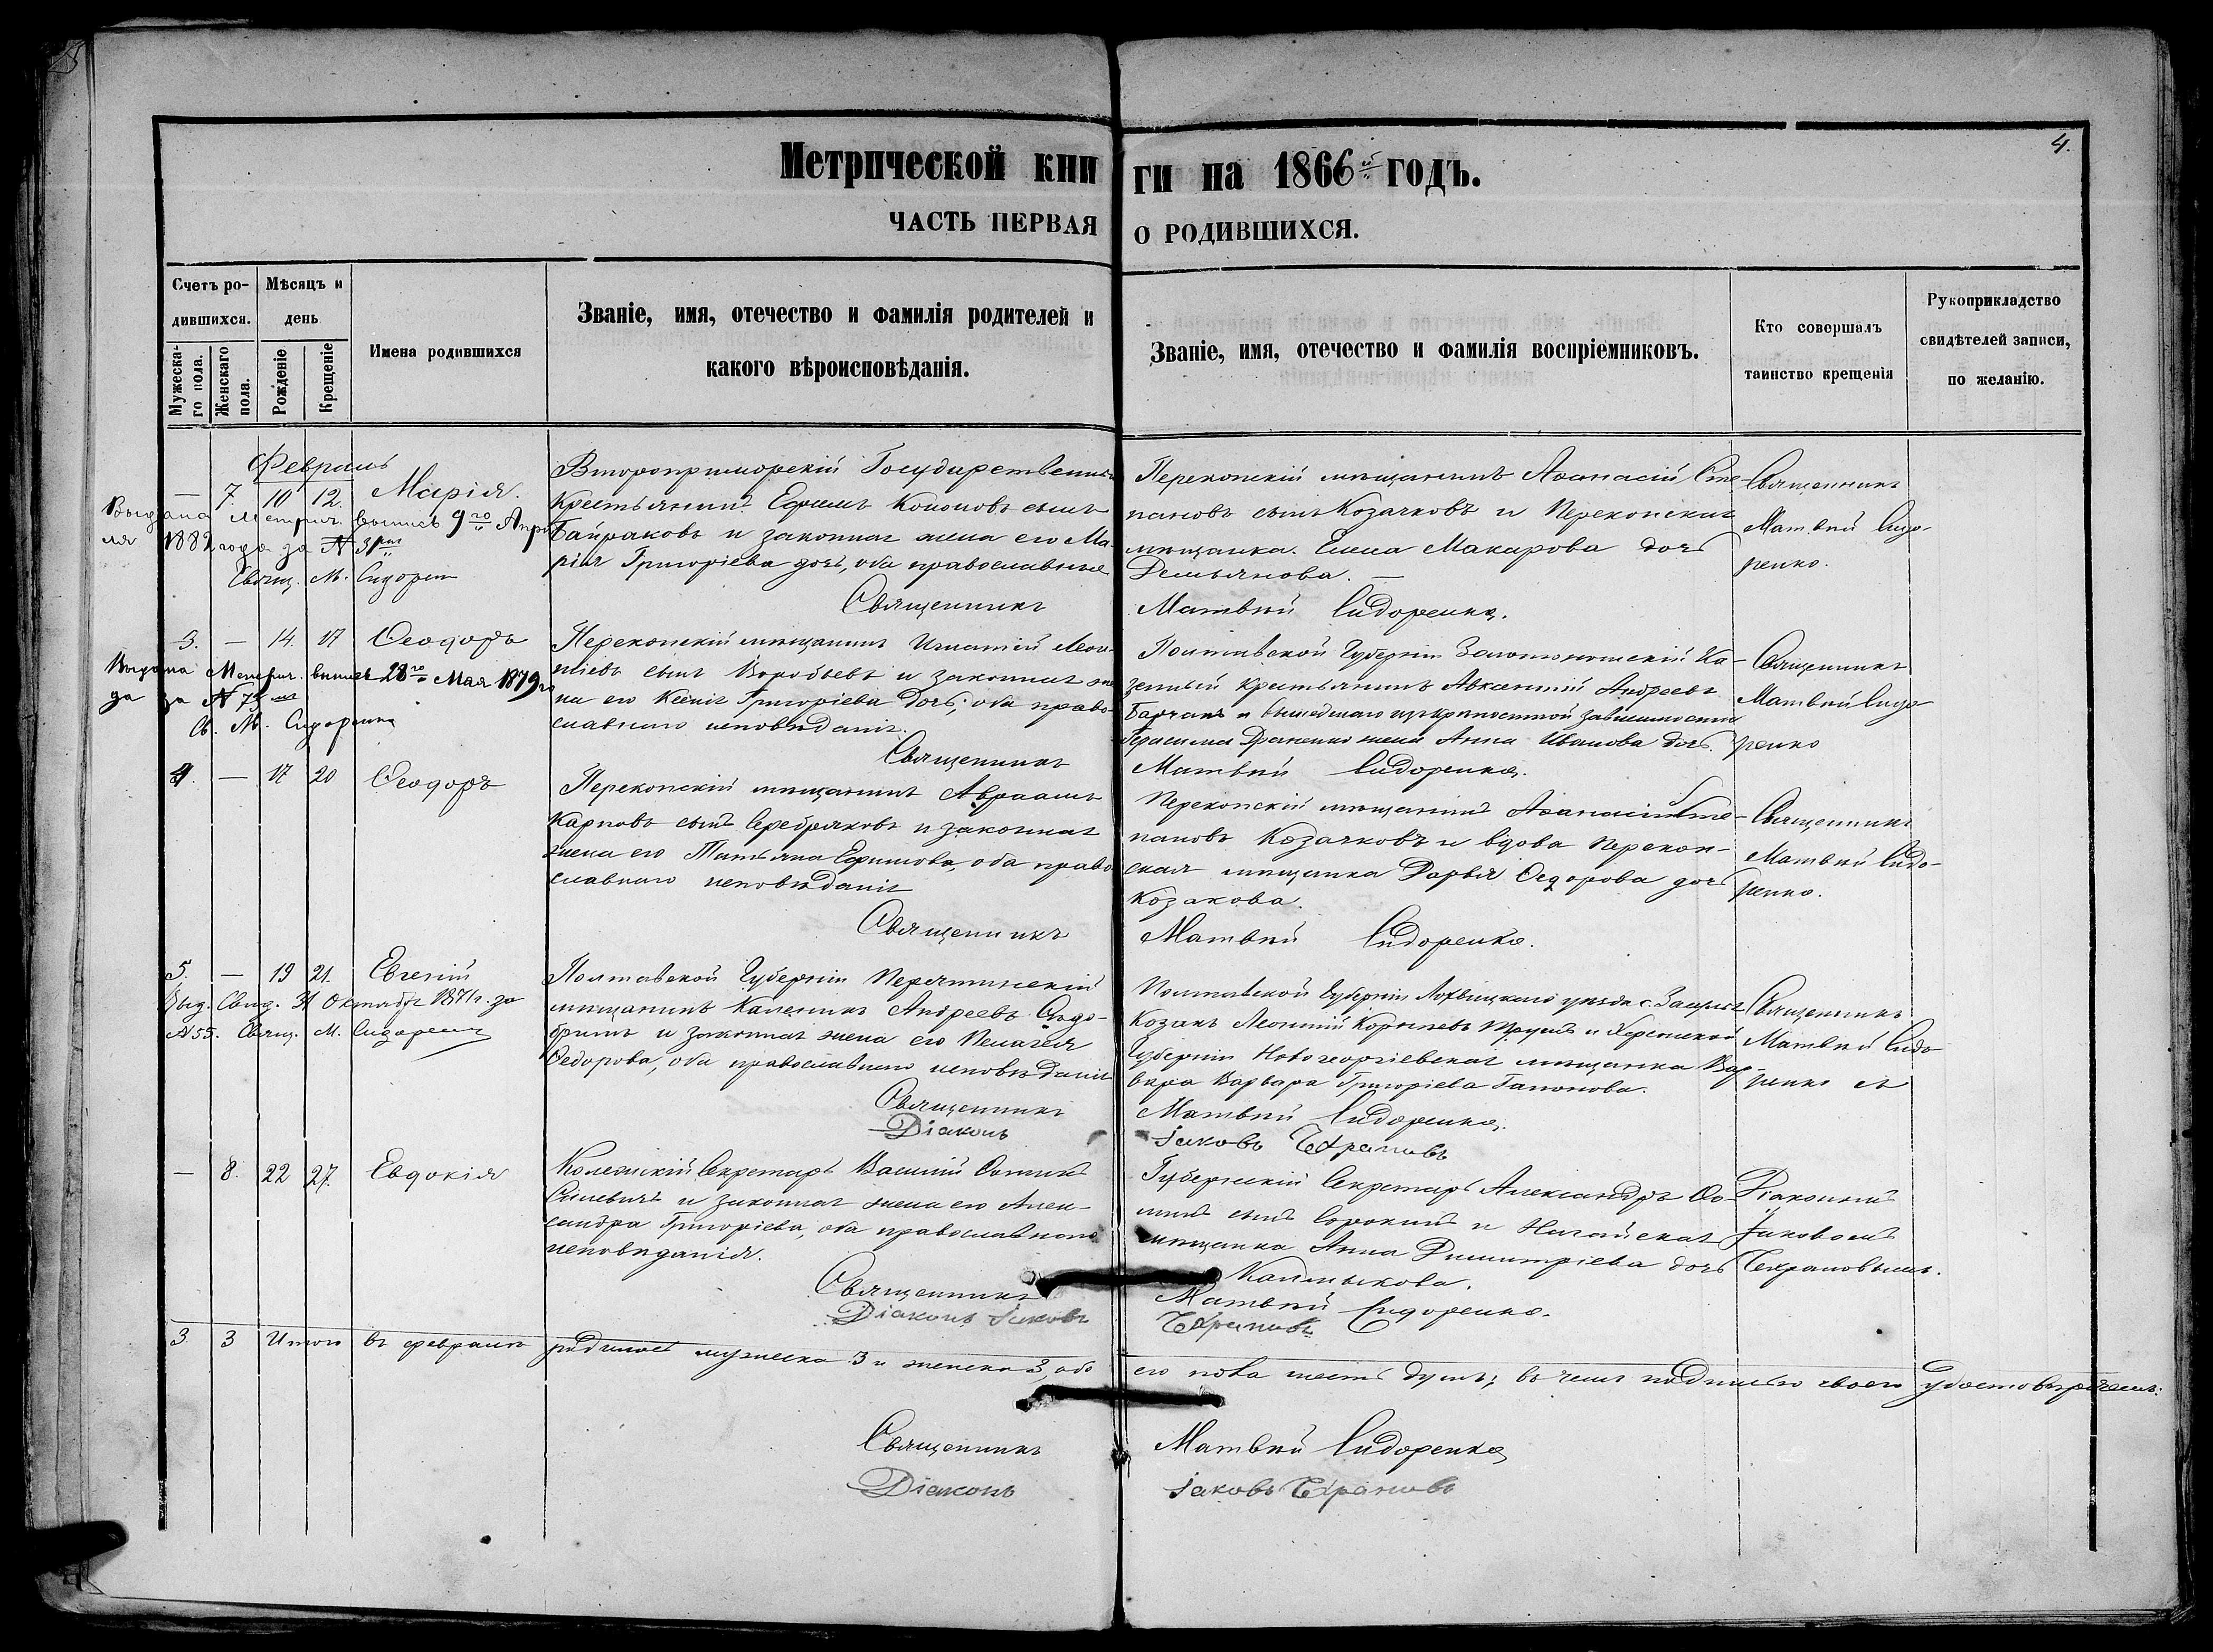 4.
Метрической кни ги на 1866й годъ.
ЧАСТЬ ПЕРВАЯ О РОДИВШИХСЯ.
Счетъ ро-
дившихся.
Мужеска-
го пола.
Женскаго
пола.
Мѣсяцъ и
день
Рожденіе
Крещеніе
Имена родившихся
Званіе, имя, отечество и фамилія родителей и
какого вѣроисповѣданія.
Званіе, имя, отечество и фамилія воспріемниковъ.
Кто совершалъ
таинство крещенія
Рукоприкладство
свидѣтелей записи,
по желанію.
Февраль
— 7. 10 12. Марія.
Выдана Метрич. выпись 9го Апрѣ
ля 1882 года за №
Свящ. М. Сидорен
Второприморскій Государственный
Крестьянинъ Ефремъ Кононовъ сынъ
Байраковъ и законная жена его Ма-
рія Григоріева дочь, оба православные
Священникъ
Перекопскій мѣщанинъ Аѳанасій Сте-
пановъ сынъ Козачковъ и Перекопская
мѣщанка Елена Макарова дочь
Демьянова. —
Матвѣй Сидоренко.
Священникъ
Матвѣй Сидо-
ренко.
3. — 14. 17 Ѳеодоръ
Выдана Метрич. выпись 28го Мая 1879го
да за №
Св. М. Сидоренко
Перекопскій мѣщанинъ Игнатій Леон-
тіевъ сынъ Воробьевъ и законная же
на его Ксенія Григоріева дочь; оба право-
славнаго исповѣданія.
Священникъ
Полтавской Губерніи Золотоношскій Ка-
зенный крестьянинъ Авксентій Андреевъ
и вышедшаго изъ крѣпостной зависимости
Герасима жена Анна Иванова дочь.
Матвѣй Сидоренко.
Священникъ
Матвѣй Сидо
ренко
4. — 17 20 Ѳеодоръ
Перекопскій мѣщанинъ Авраамъ
Карповъ сынъ Серебряковъ и законная
жена его Татьяна Ефимова, оба право
славнаго исповѣданія
Священникъ
Перекопскій мѣщанинъ Аѳанасій Сте-
пановъ Козачковъ и вдова Перекоп-
ская мѣщанка Дарья Ѳедорова дочь
Козакова.
Матвѣй Сидоренко.
Священникъ
Матвѣй Сидо-
ренко.
5. — 19 21. Евгеній
Выд. Свид. 31 Октября 1871г. за
№ 55. Свящ. М. Сидоренко
Полтавской Губерніи Пирятинскій
мѣщанинъ Каленикъ Андреевъ
и законная жена его Пелагея
Ѳедорова, оба православнаго исповѣданія
Священникъ
Діаконъ
Полтавской Губерніи Лохвицкаго уѣзда с.
Козакъ Леонтій Корніевъ и Херсонской
Губерніи Новогеоргіевская мѣщанка Вар-
вара Варвара Григоріева Гапонова.
Матвѣй Сидоренко.
Іаковъ
Священникъ
Матвѣй Сидо
ренко
— 8. 22 27. Евдокія
Колежскій Секретарь Василій
и законная жена его Алек-
сандра Григоріева, оба православнаго
исповѣданія.
Священникъ
Діаконъ Іаковъ
Губернскій Секретарь Александръ Ѳо-
минъ сынъ Сорокинъ и Ногайская
мѣщанка Анна Димитріева дочь
Калмыкова.
Матвѣй Сидоренко.
Діакономъ
Іаковомъ
3 3 Итого въ февралѣ родилось мужеска 3 и женска 3, обо его пола шесть душъ; въ чемъ подписью своею удостовѣряемъ:
Священникъ Матвѣй Сидоренко
Діаконъ Іаковъ